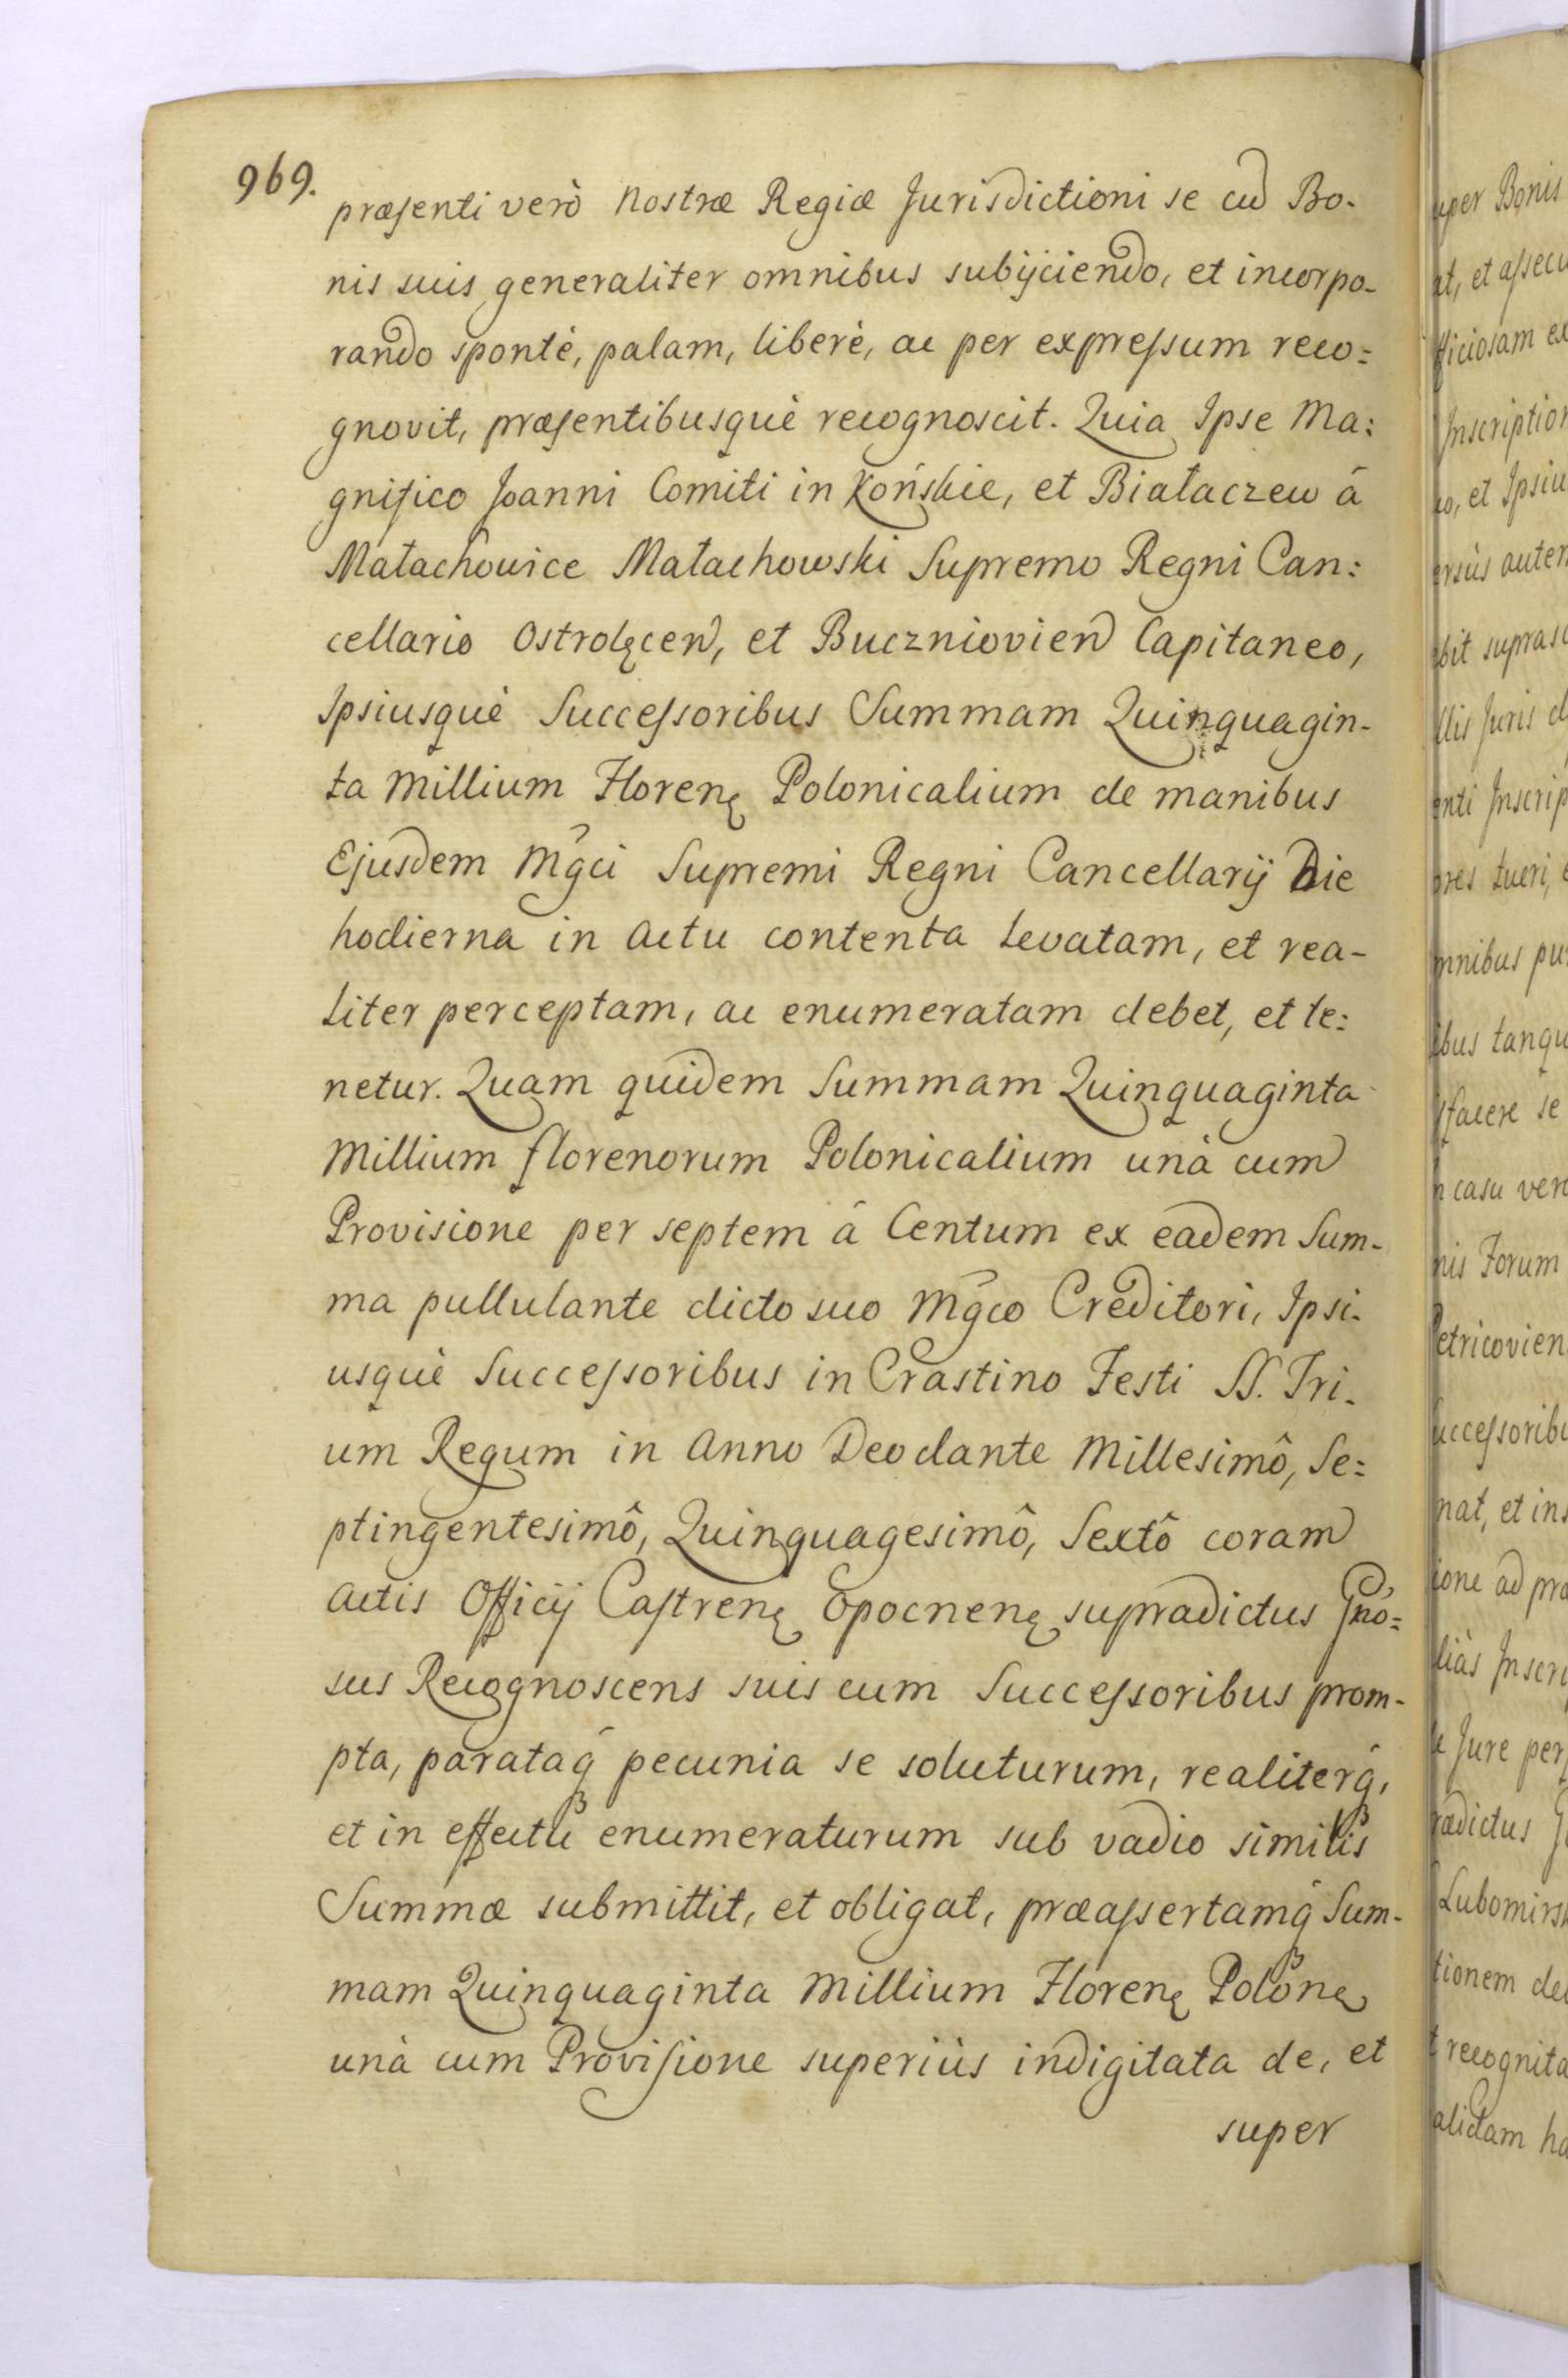 969.
præsenti verò Nostræ Regiæ Jurisdictioni se cu Bo-
nis suis generaliter omnibus subijciendo, et incorpo-
rando sponté, palam, liberè, ac per expressum reco=
gnovit, præsentibusquè recognoscit. Quia Ipse Ma=
gnifico Joanni Comiti in Końskie, et Białaczew â
Małachowice Małachowski Supremo Regni Can=
cellario Ostrolęcen, et Buczniovien Capitaneo,
Ipsiusquè Successoribus Summam Quinquagin-
ta Millium Florenę Polonicalium de manibus
Ejusdem Mgci Supremi Regni Cancellarij Die
hodierna in Actu contenta Levatam, et rea-
liter perceptam, ac enumeratam debet, et te=
netur. Quam quidem Summam Quinquaginta
Millium florenorum Polonicalium unà cum
Provisione per septem â Centum ex eadem Sum-
ma pullulante dicto suo Mgco Creditori, Ipsi-
usquè Successoribus in Crastino Festi SS. Tri-
um Regum in Anno Deo dante Millesimô, Se=
ptingentesimô, Quinquagesimô, Sextô coram
Actis Officij Castrenę Opocnenę supradictus Gno=
sus Recognoscens suis cum Successoribus prom-
pta, parataq́ pecunia se soluturum, realiterq́,
et in effectu enumeraturum sub vadio similis
Summæ submittit, et obligat, præassertamq́ Sum-
mam Quinquaginta Millium Florenę Polonę
unà cum Provisione superiùs indigitata de, et
super
uper Bonis
at, et assecu
fficiosam ex
Inscription
co, et Ipsiu
ersùs autem
ebit suprasc
llis Juris d
enti Inscrip
ores tueri, e
mnibus pu
ibus tanqu
sfacere se
n casu vero
nis Forum
Petricovien
Successoribu
nat, et ins
ione ad pra
liàs Inscri
e Jure per
radictus G
Lubomirsk
tionem de
t recognita
alidam ha